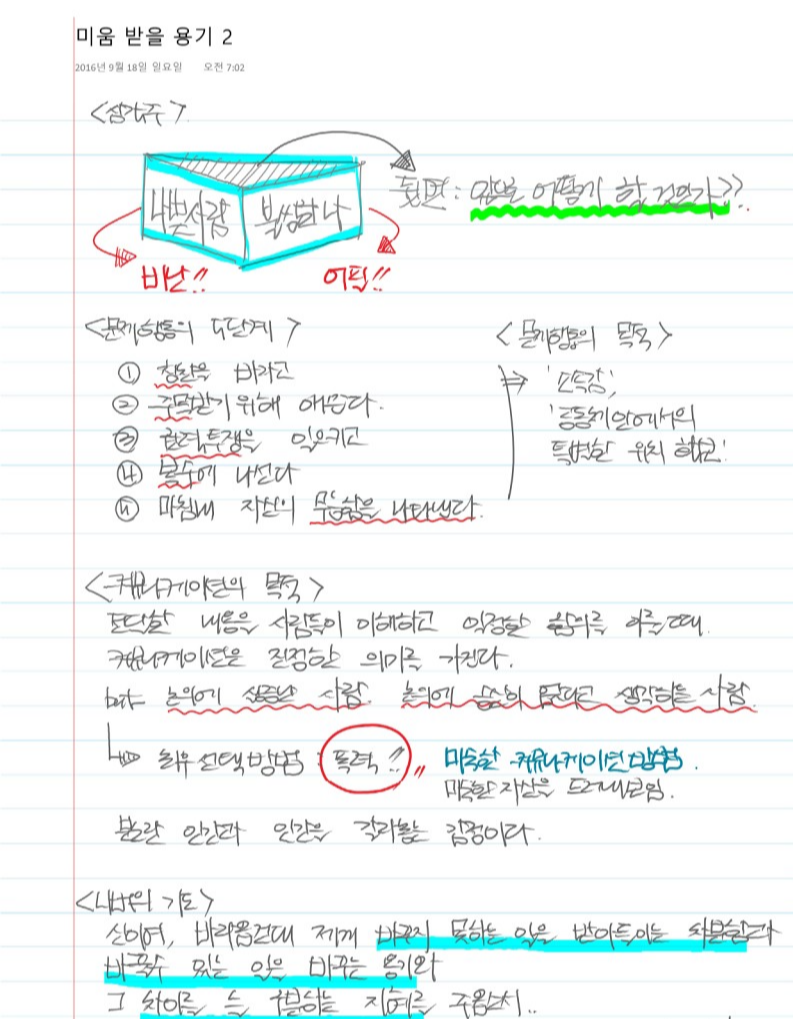 미움 받을 용기 2
2016년 9월 18일 일요일 오전 7:02
<삼각주>
나쁜사람 불쌍한 나
뒷면: 앞으로 어떻게 할 것인가??
비난!! 어필!!
<문제행동의 5단계>
① 칭찬을 바라고
② 주목받기 위해 애쓴다.
③ 권력투쟁을 일으키고
④ 복수에 나선다
⑤ 마침내 자신의 무능함을 나타낸다.
<문제행동의 목적>
⇒ '소속감',
'공동체안에서의
특별한 위치 확보'
<커뮤니케이션의 목적>
전달할 내용을 사람들이 이해하고 일정한 합의를 이룰때
커뮤니케이션은 진정한 의미를 가진다.
but 논의에 싫증난 사람. 논의에 승산이 없다고 생각하는 사람.
최후 선택방법 : 폭력!! 미숙한 커뮤니케이션 방법.
미숙한 자신을 드러내보임.
분노란 인간과 인간을 갈라놓는 감정이다.
<니버의 기도>
신이여, 바라옵건대 제게 바꾸지 못하는 일을 받아들이는 차분함과
바꿀수 있는 일은 바꾸는 용기와
그 차이를 늘 구분하는 지혜를 주옵소서..